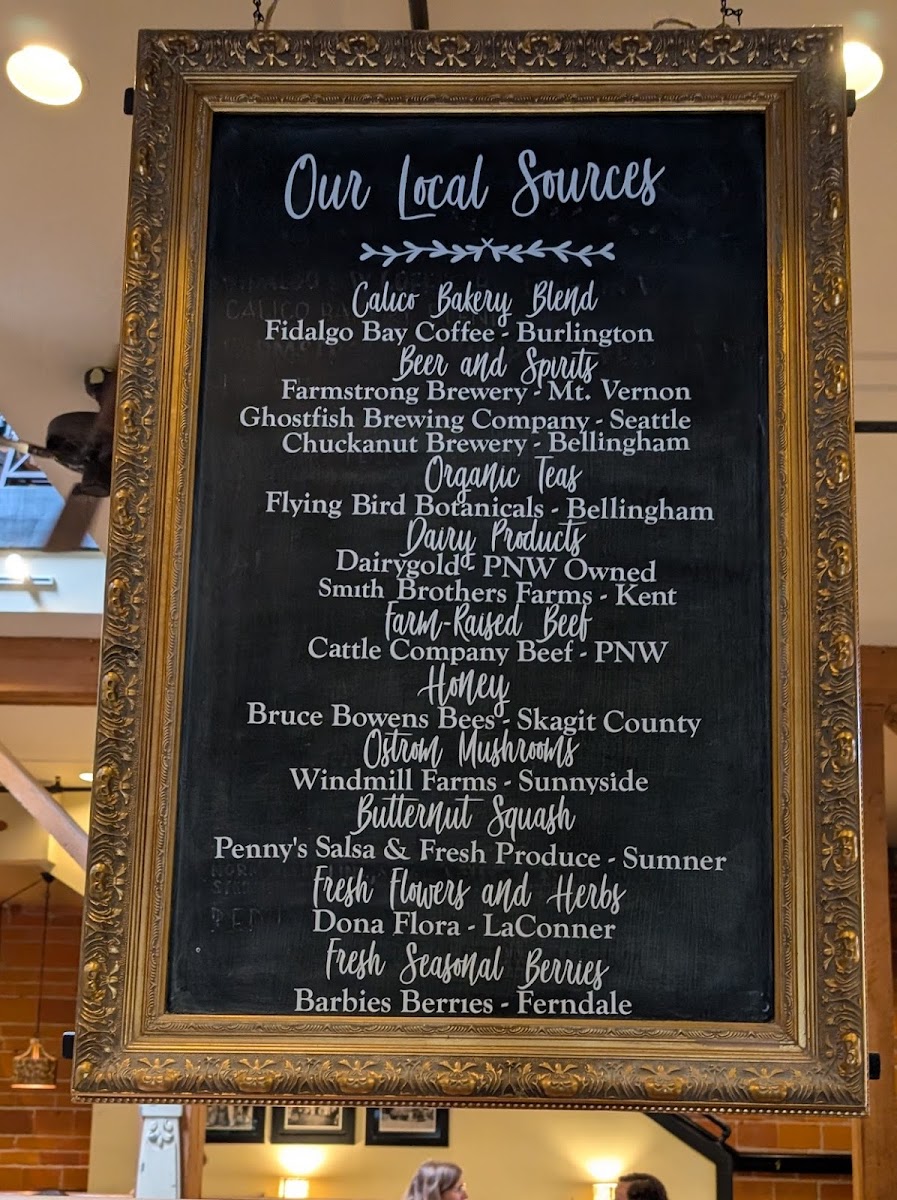 Our Local Sources
Calico Bakery Blend
Fidalgo Bay Coffee - Burlington
Beer and Spirits
Farmstrong Brewery - Mt. Vernon
Ghostfish Brewing Company - Seattle
Chuckanut Brewery - Bellingham
Organic Teas
Flying Bird Botanicals - Bellingham
Dairy Products
Dairygold - PNW Owned
Smith Brothers Farms - Kent
Farm-Raised Beef
Cattle Company Beef - PNW
Honey
Bruce Bowens Bees - Skagit County
Ostrom Mushrooms
Windmill Farms - Sunnyside
Butternut Squash
Penny's Salsa & Fresh Produce - Sumner
Fresh Flowers and Herbs
Dona Flora - LaConner
Fresh Seasonal Berries
Barbies Berries - Ferndale